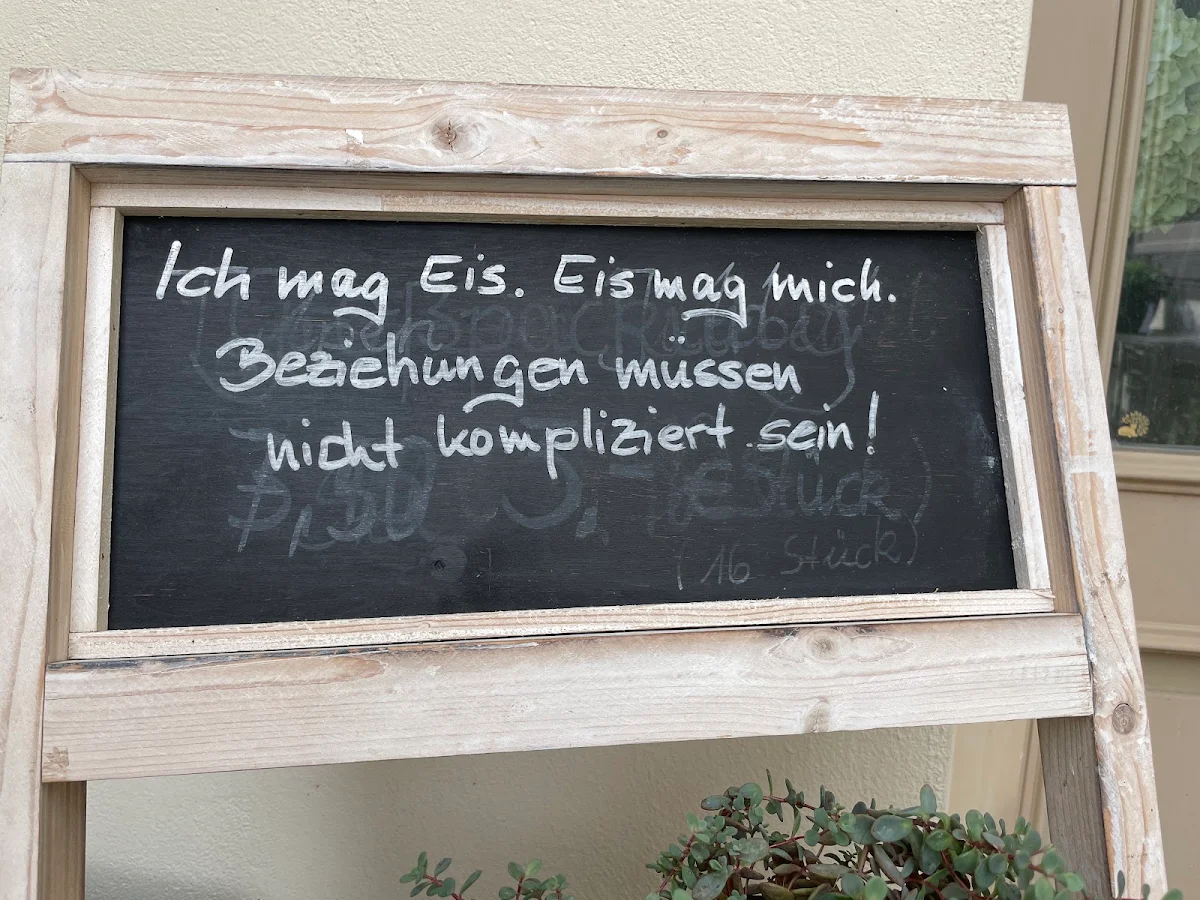 Ich mag Eis. Eis mag mich.
Beziehungen müssen
nicht kompliziert sein!
Stück)
(16 Stück)